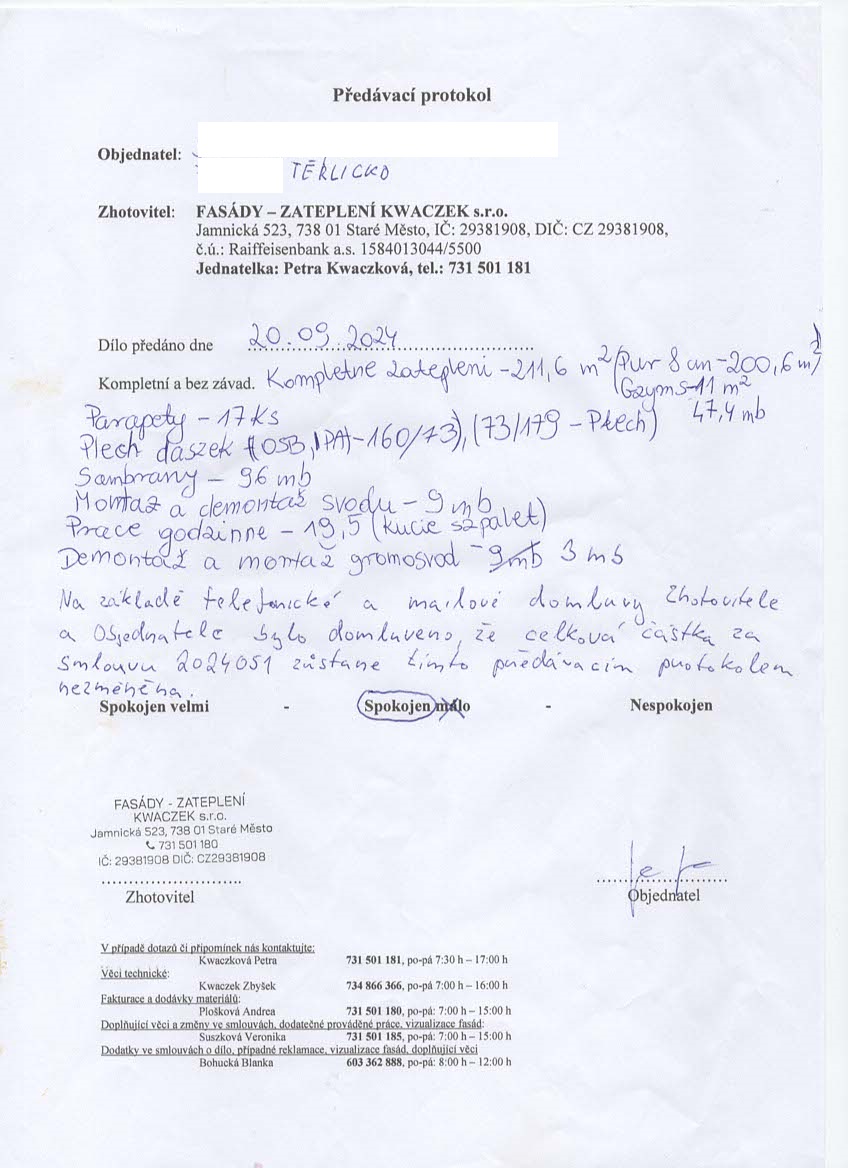 Předávací protokol
Objednatel:
TĚRLICKO
Zhotovitel: FASÁDY – ZATEPLENÍ KWACZEK s.r.o.
Jamnická 523, 738 01 Staré Město, IČ: 29381908, DIČ: CZ 29381908,
č.ú.: Raiffeisenbank a.s. 1584013044/5500
Jednatelka: Petra Kwaczková, tel.: 731 501 181
Dílo předáno dne 20.09.2024
Kompletní a bez závad. Kompletne zatepleni – 211,6 m² (Pur 8 cm – 200,6 m²)
(Gzyms – 11 m²
Parapety – 17 ks 47,4 mb
Plech daszek (OSB, PA) – 160/73), (73/179 – Plech)
Sambrany – 96 mb
Montaz a demontaž svodu – 9 mb
Prace godzinne – 19,5 (kucie szpalet)
Demontaž a montaž gromosvod – 9mb 3 mb
Na základě telefonické a mailové domluvy Zhotovitele
a Objednatele bylo domluveno, že celková částka za
smlouvu 2024051 zůstane tímto předávacím protokolem
nezměněna.
Spokojen velmi - Spokojen málo - Nespokojen
FASÁDY - ZATEPLENÍ
KWACZEK s.r.o.
Jamnická 523, 738 01 Staré Město
731 501 180
IČ: 29381908 DIČ: CZ29381908
Zhotovitel Objednatel
V případě dotazů či připomínek nás kontaktujte:
Kwaczková Petra 731 501 181, po-pá 7:30 h – 17:00 h
Věci technické:
Kwaczek Zbyšek 734 866 366, po-pá 7:00 h – 16:00 h
Fakturace a dodávky materiálů:
Plošková Andrea 731 501 180, po-pá: 7:00 h – 15:00 h
Doplňující věci a změny ve smlouvách, dodatečné prováděné práce, vizualizace fasád:
Suszková Veronika 731 501 185, po-pá: 7:00 h – 15:00 h
Dodatky ve smlouvách o dílo, případné reklamace, vizualizace fasád, doplňující věci
Bohucká Blanka 603 362 888, po-pá: 8:00 h – 12:00 h